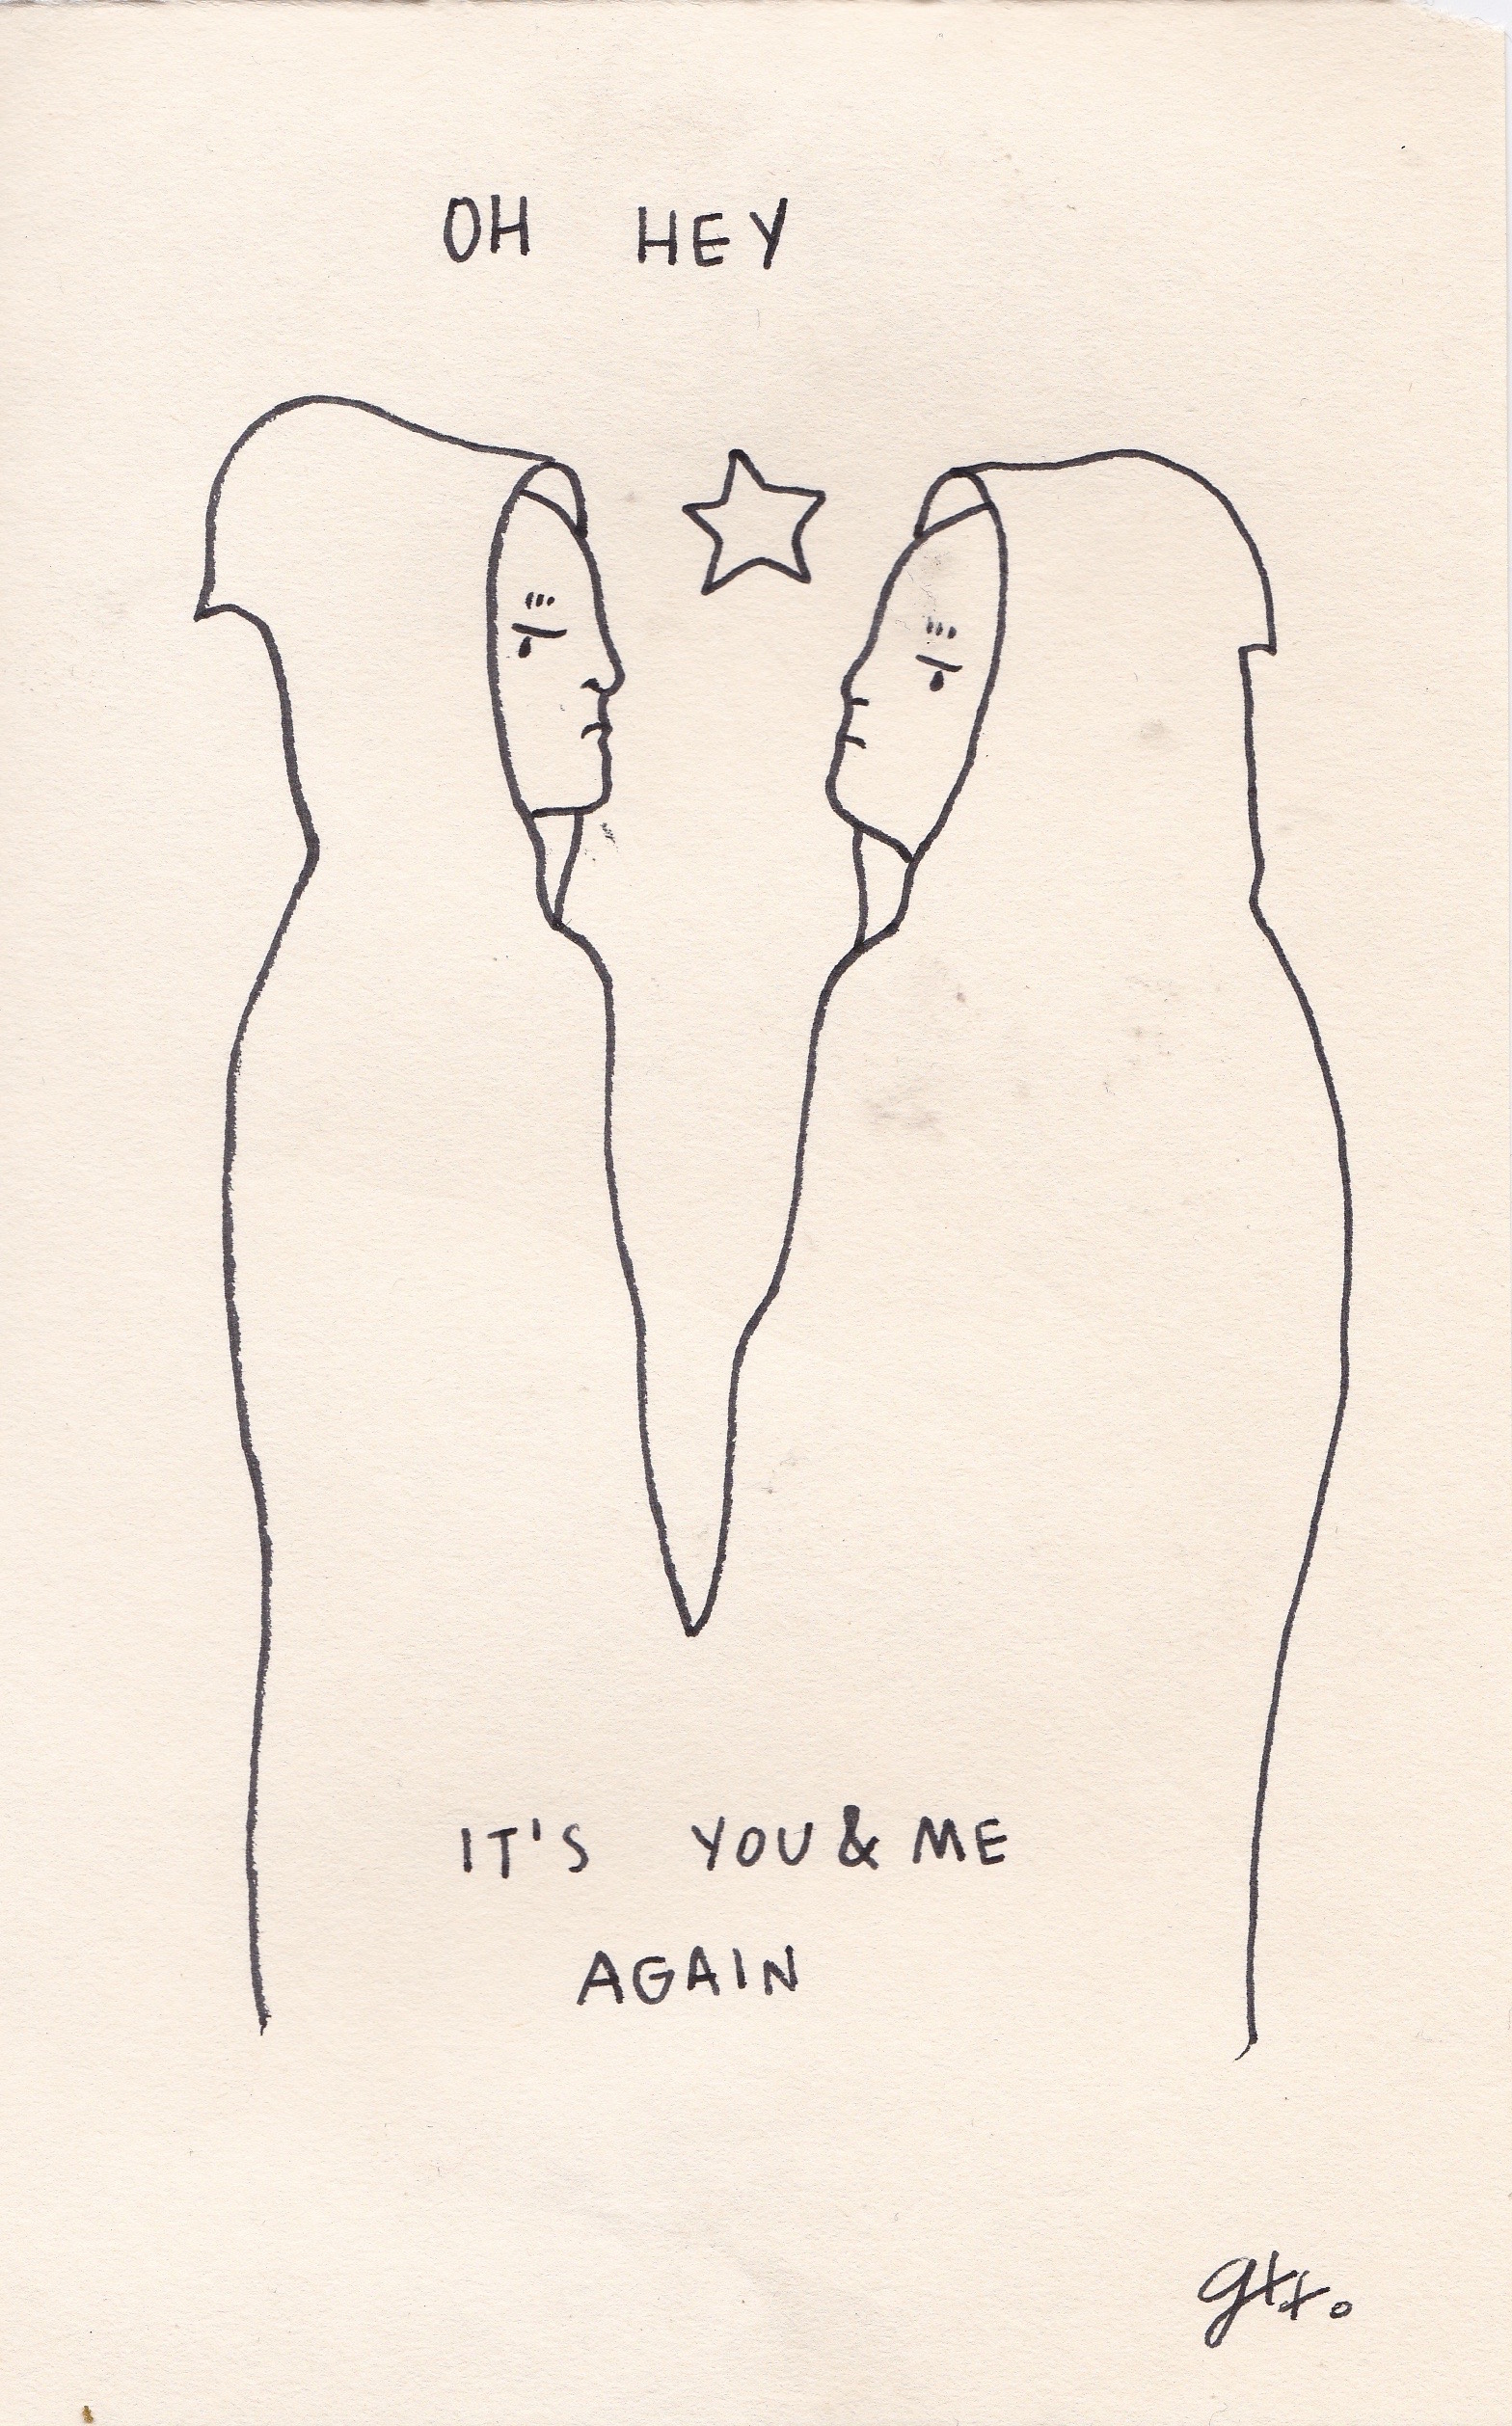 OH HEY
IT'S YOU & ME
AGAIN
gxx.